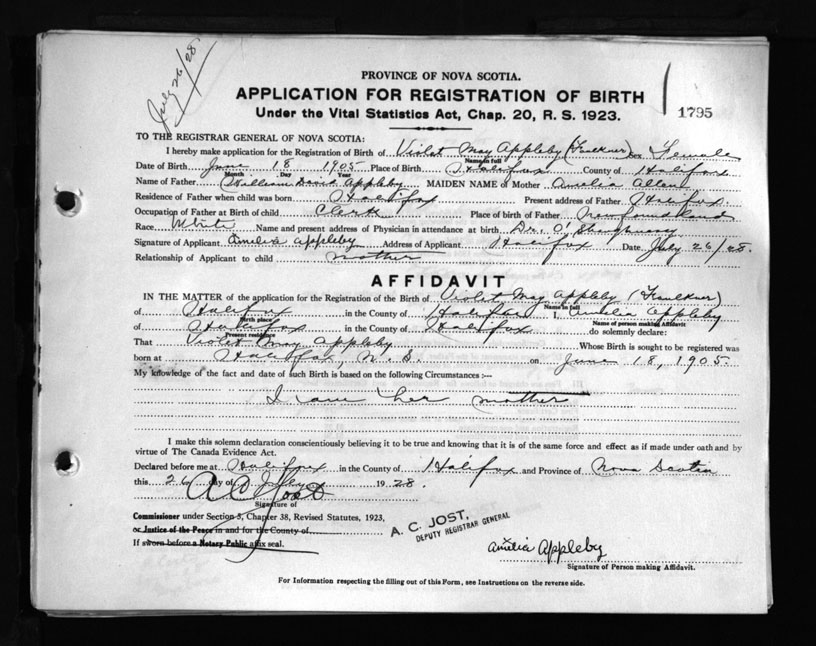 July 26/28
PROVINCE OF NOVA SCOTIA.
APPLICATION FOR REGISTRATION OF BIRTH
Under the Vital Statistics Act, Chap. 20, R. S. 1923.
1795
TO THE REGISTRAR GENERAL OF NOVA SCOTIA:
I hereby make application for the Registration of Birth of Violet May Appleby (Faulkner) Sex Female
Name in full
Date of Birth June 18 1905 Place of Birth Halifax County of Halifax
Month Day Year
Name of Father William David Appleby MAIDEN NAME of Mother Amelia Allen
Residence of Father when child was born Halifax Present address of Father Halifax
Occupation of Father at Birth of child Clerk Place of birth of Father Newfoundland
Race White Name and present address of Physician in attendance at birth Dr. O'Shaughnessy
Signature of Applicant Amelia Appleby Address of Applicant Halifax Date July 26/28.
Relationship of Applicant to child mother
AFFIDAVIT
IN THE MATTER of the application for the Registration of the Birth of Violet May Appleby (Faulkner)
Name in full
of Halifax in the County of Halifax I, Amelia Appleby
Birth place Name of person making Affidavit
of Halifax in the County of Halifax do solemnly declare:
Present residence
That Violet May Appleby Whose Birth is sought to be registered was
born at Halifax, N. S. on June 18, 1905.
My knowledge of the fact and date of such Birth is based on the following Circumstances :—
I am her mother
I make this solemn declaration conscientiously believing it to be true and knowing that it is of the same force and effect as if made under oath and by
virtue of The Canada Evidence Act.
Declared before me at Halifax in the County of Halifax and Province of Nova Scotia
this 26 day of July 1928.
A C Jost
Signature of
Commissioner under Section 3, Chapter 38, Revised Statutes, 1923,
or Justice of the Peace in and for the County of
If sworn before a Notary Public affix seal.
A. C. JOST,
DEPUTY REGISTRAR GENERAL
Amelia Appleby
Signature of Person making Affidavit.
For Information respecting the filling out of this Form, see Instructions on the reverse side.